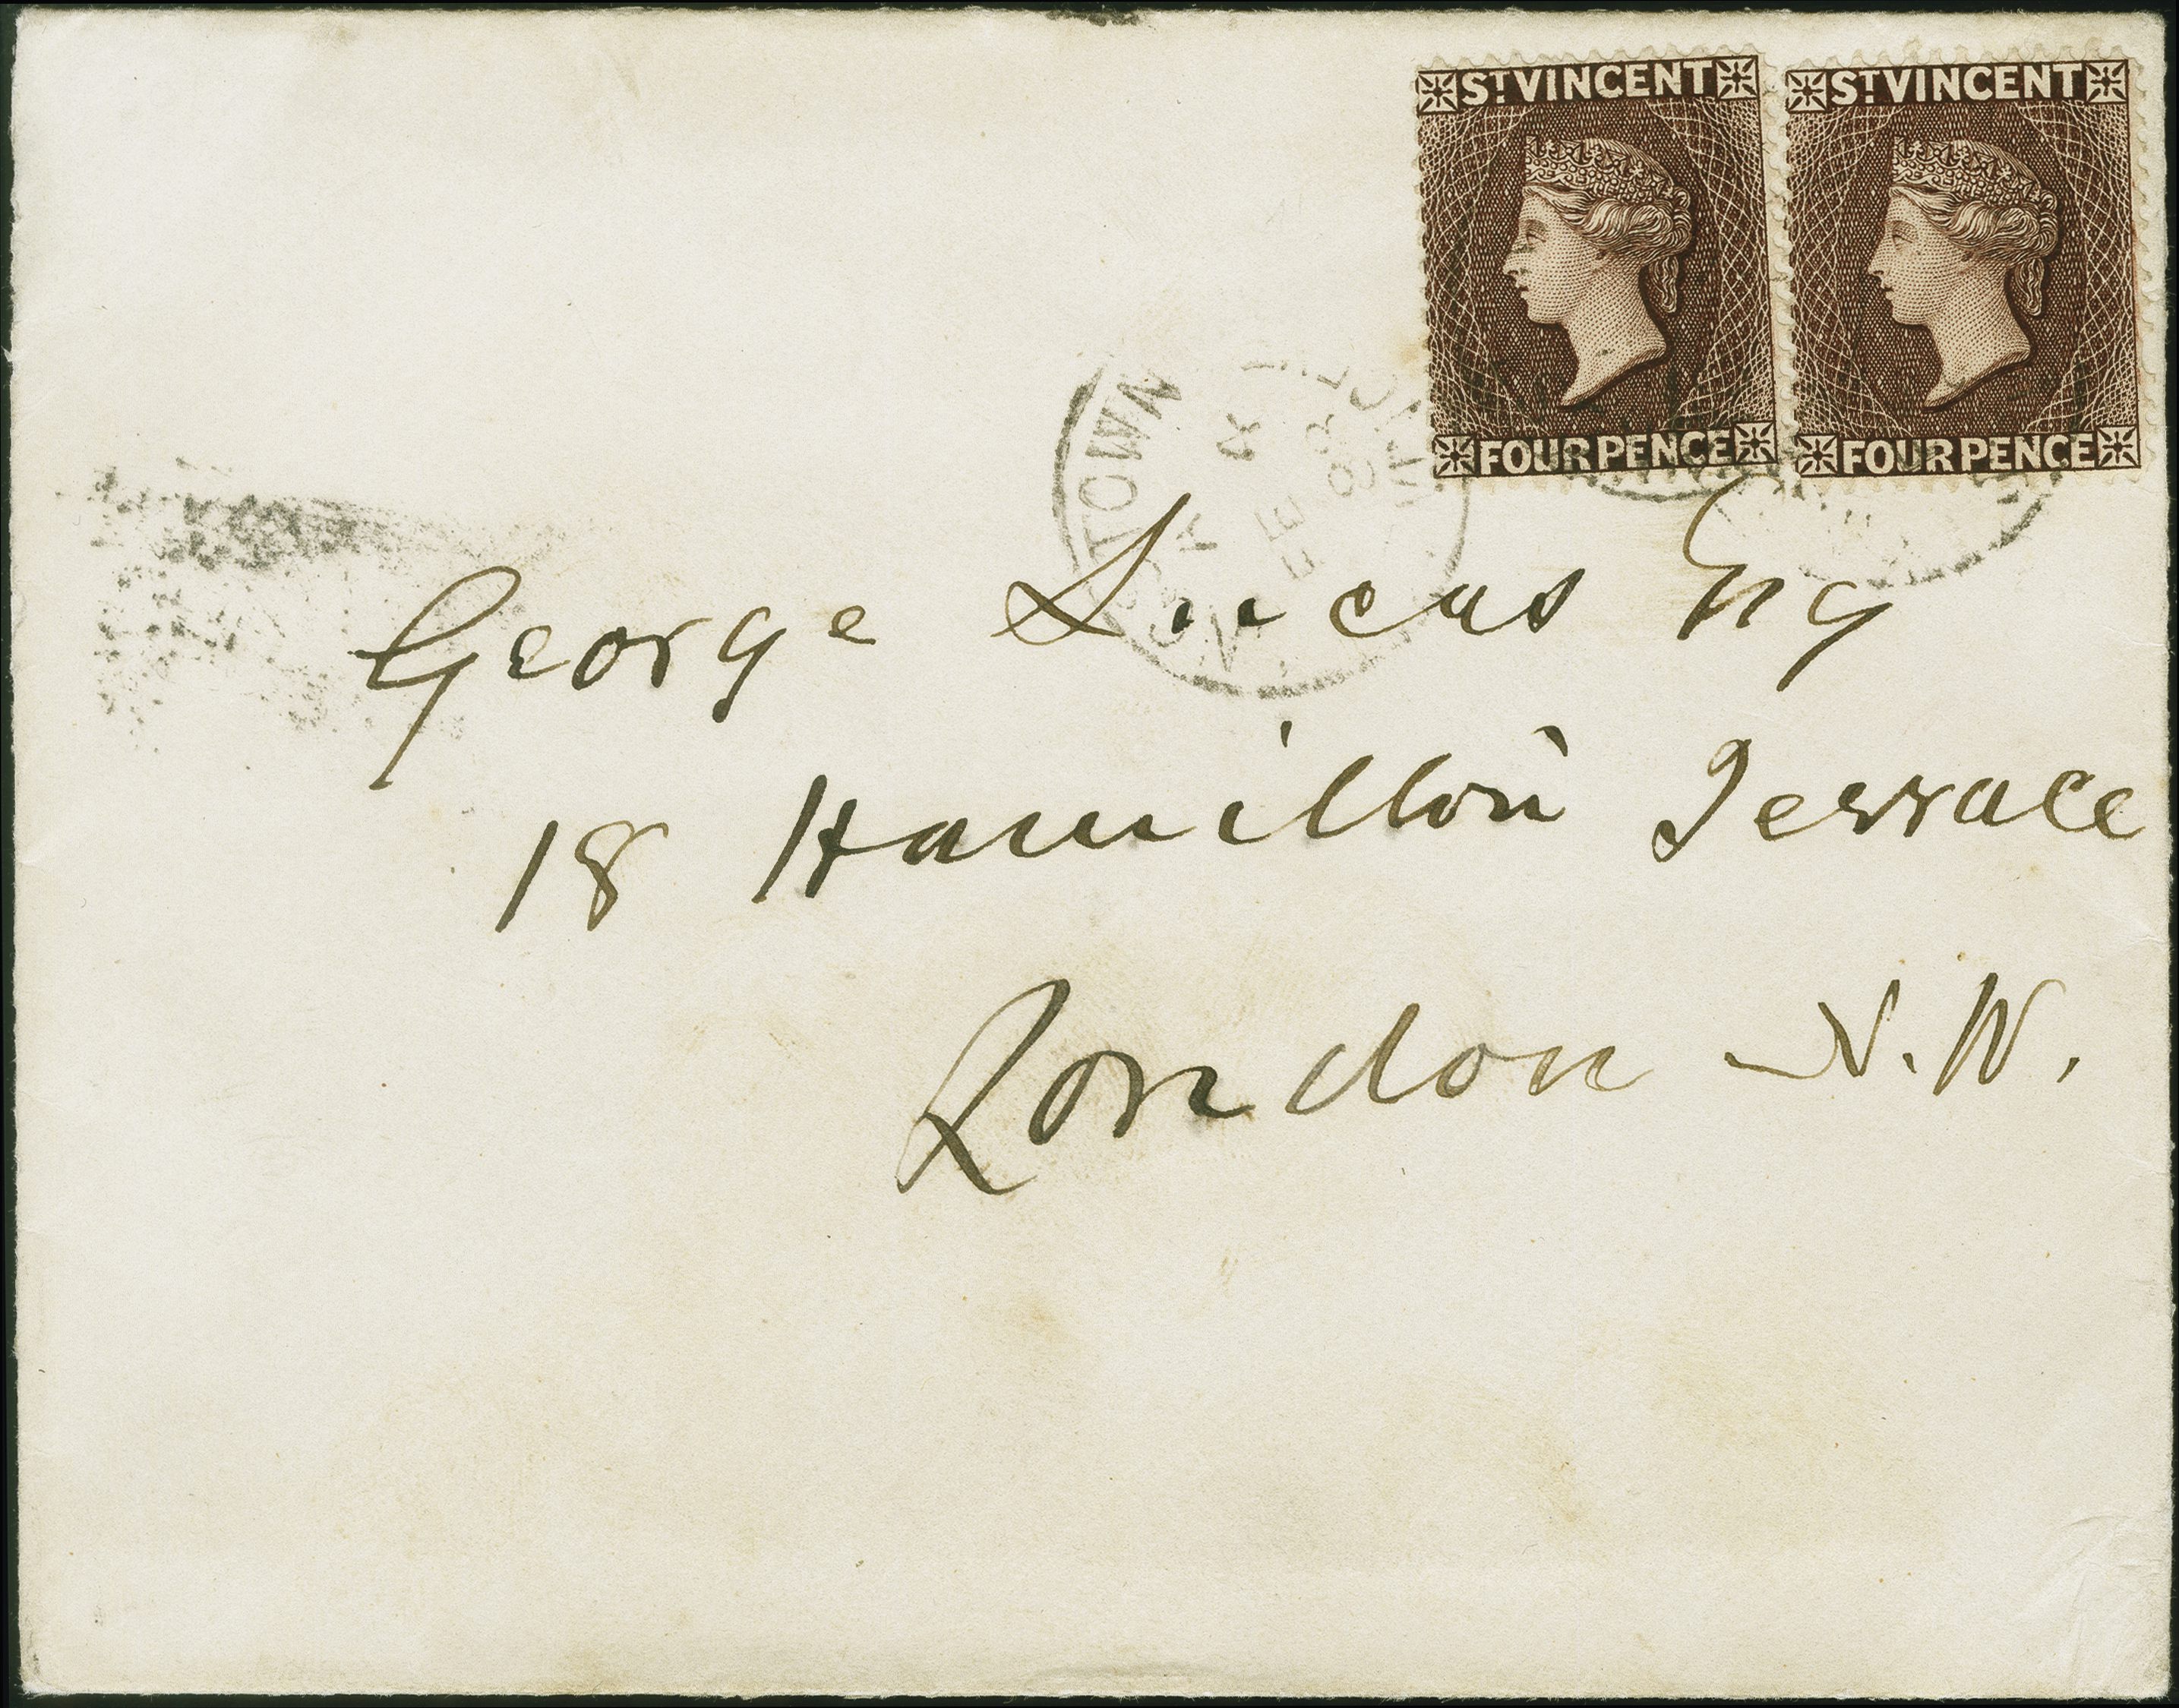 ST VINCENT ST VINCENT
FOUR PENCE FOUR PENCE
TOWN
A
FE
George Lucas Esq
18 Hamilton Terrace
London N.W.